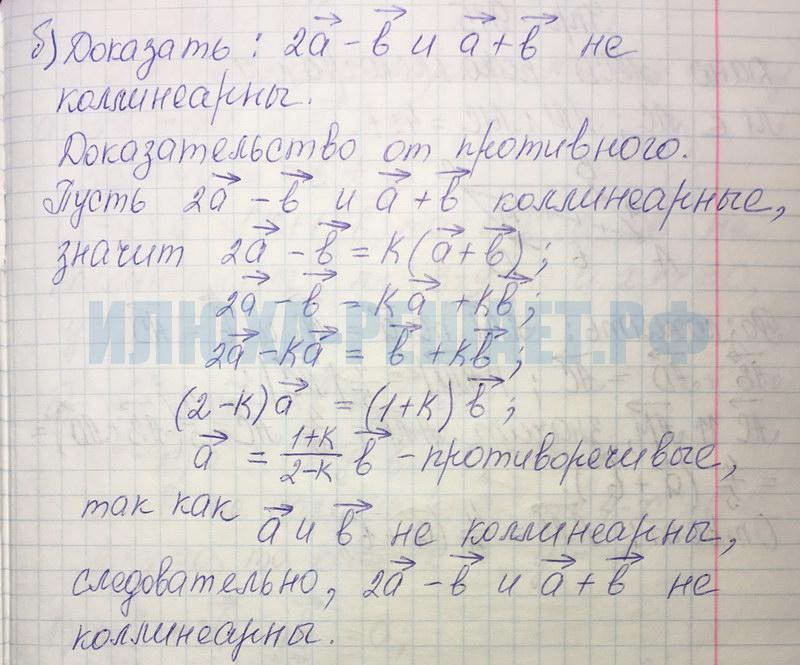 б) Доказать: 2a⃗ − b⃗ и a⃗ + b⃗ не
коллинеарны.
Доказательство от противного.
Пусть 2a⃗ − b⃗ и a⃗ + b⃗ коллинеарные,
значит 2a⃗ − b⃗ = к(a⃗ + b⃗);
2a⃗ − b⃗ = кa⃗ + кb⃗;
ИЛЮХА-РЕШАЕТ.РФ
2a⃗ − кa⃗ = b⃗ + кb⃗;
(2−к)a⃗ = (1+к)b⃗;
a⃗ = (1+к)/(2−к) b⃗ − противоречивые,
так как a⃗ и b⃗ не коллинеарны,
следовательно, 2a⃗ − b⃗ и a⃗ + b⃗ не
коллинеарны.